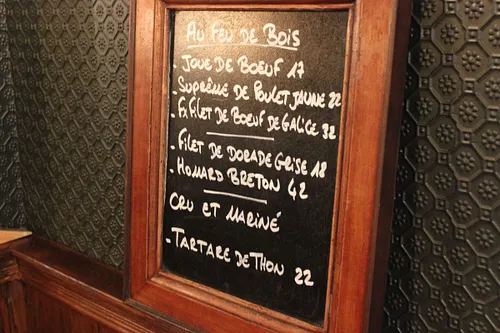 AU FEU DE BOIS
- JOUE DE BOEUF 17
- SUPRÊME DE POULET JAUNE 22
- FX FILET DE BOEUF DE GALICE 32
- FILET DE DORADE GRISE 18
- HOMARD BRETON 42
CRU ET MARINÉ
- TARTARE DE THON 22